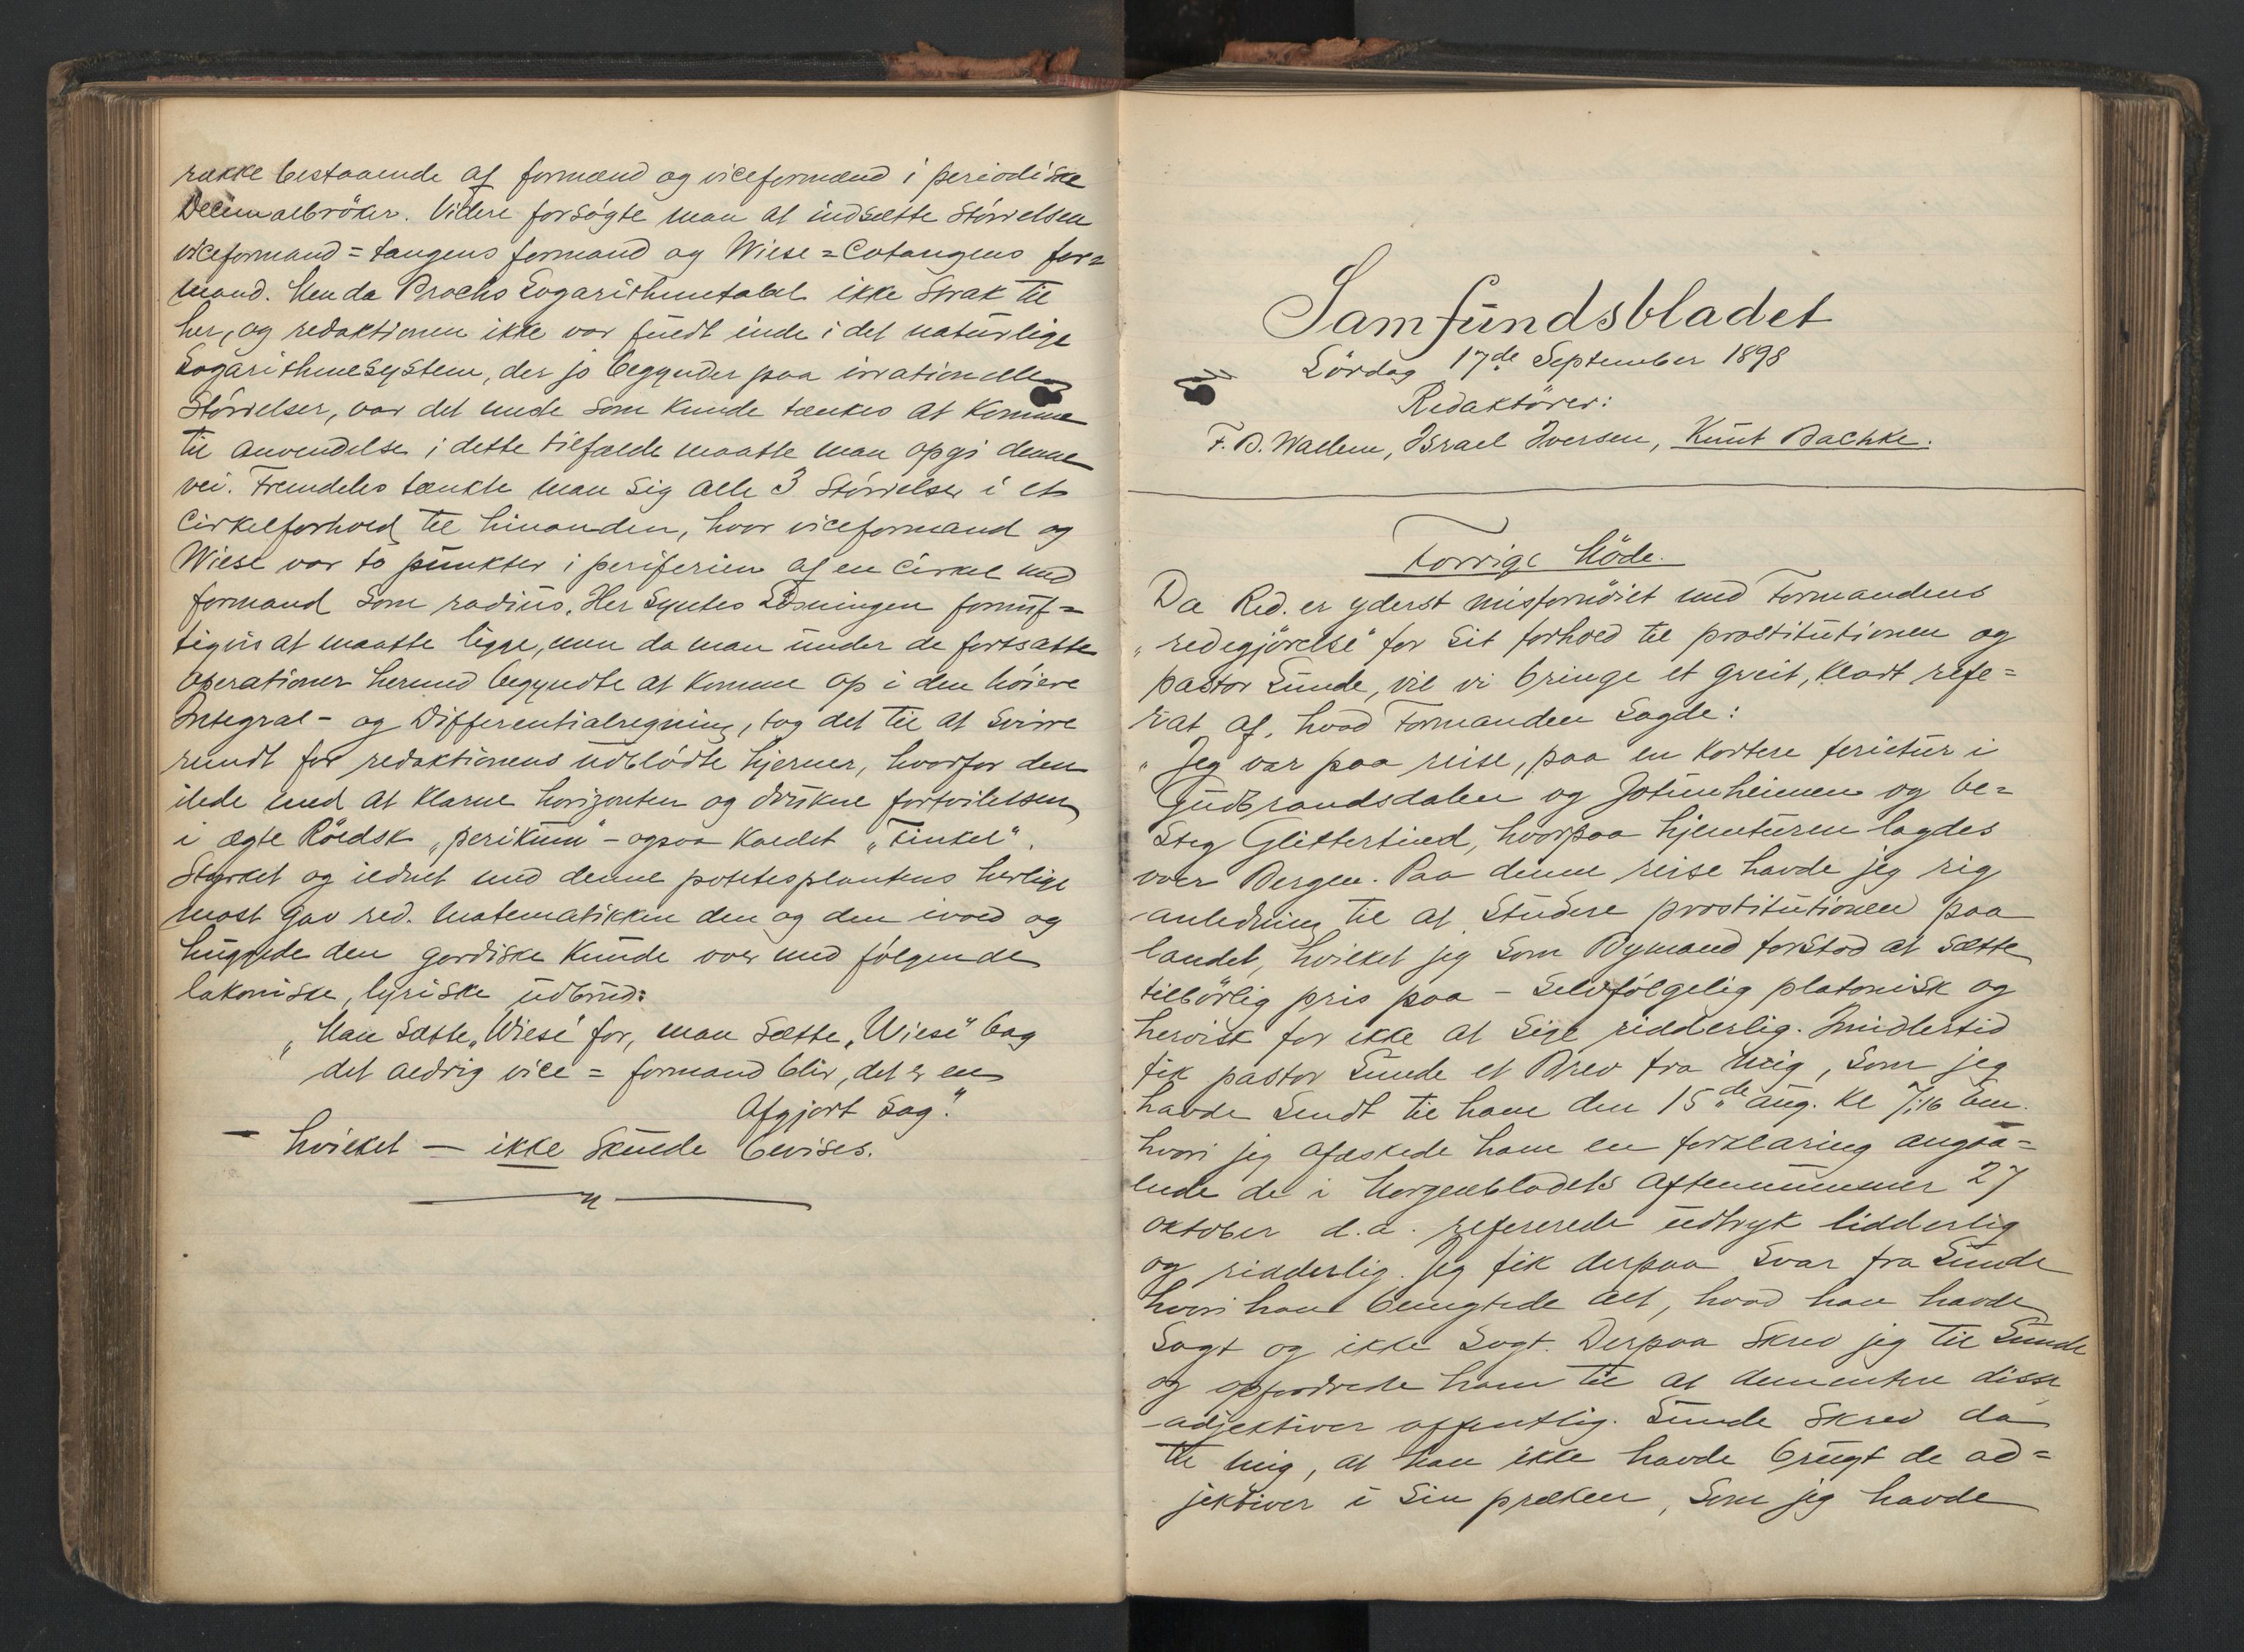 række bestaaende af formænd og viceformænd i periodiske
Decimalbröker. Videre forsögte man at indsætte Störrelsen
viceformand = tangens formand og Wiese = Cotangens for=
mand. Men da Brochs Logarithmetabel ikke strak til
her, og redaktionen ikke var fuldt inde i det naturlige
Logarithmesystem, der jo begynder paa irrationelle
Störrelser, var det eneste som kunde tænkes at komme
til anvendelse i dette tilfælde maatte man opgi denne
vei. Fremdeles tænkte man sig alle 3 Störrelser i et
Cirkelforhold til hinanden, hvor viceformand og
Wiese var to punkter i periferien af en Cirkel med
formand som radius. Her syntes Lösningen fornuf=
tigvis at maatte ligge, men da man under de fortsatte
Operationer hermed begyndte at komme op i den höiere
Integral- og Differentialregning, tog det til at svirre
rundt for redaktionens udblödte hjerner, hvorfor den
ilede med at klarne horizonten og drukne fortvilelsen
i ægte Röldsk „perikum" - ogsaa kaldet „Finkel".
Styrket og ildnet med denne potetesplantens herlige
most gav red. matematikken den og den ivold og
huggede den gordiske Knude over med fölgende
lakoniske, lyriske udbrud:
„Man sætte „Wiese" for, man sætte „Wiese" bag
det aldrig vice = formand blir, det er en
Afgjort Sag."
- hvilket — ikke skulde bevises.
Samfundsbladet
Lördag 17de September 1898
Redaktörer:
F. B. Wallem, Israel Iversen, Knut Bachke.
Forrige Möde.
Da Red. er yderst misfornöiet med Formandens
„redegjörelse" for sit forhold til prostitutionen og
pastor Sunde, vil vi bringe et greit, klart refe=
rat af, hvad Formanden sagde:
„Jeg var paa reise, paa en kortere ferietur i
Gudbrandsdalen og Jotunheimen og be=
steg Glittertind, hvorpaa hjemturen lagdes
over Bergen. Paa denne reise havde jeg rig
anledning til at studere prostitutionen paa
landet, hvilket jeg som Bymand forstod at sætte
tilbörlig pris paa - selvfölgelig platonisk og
heroisk for ikke at sige ridderlig. Imidlertid
fik pastor Sunde et Brev fra mig, som jeg
havde sendt til ham den 15de aug. kl 7,16 Em.
hvori jeg afæskede ham en forklaring angaa=
ende de i Morgenbladets Aftennummer 27
oktober d.a. refererede udtryk lidderlig
og ridderlig. Jeg fik derpaa Svar fra Sunde
hvori han benegtede alt, hvad han havde
sagt og ikke sagt. Derpaa skrev jeg til Sunde
og opfordrede ham til at dementere disse
adjektiver offentlig. Sunde skrev da
til mig, at han ikke havde brugt de ad=
jektiver i sin præken, som jeg havde